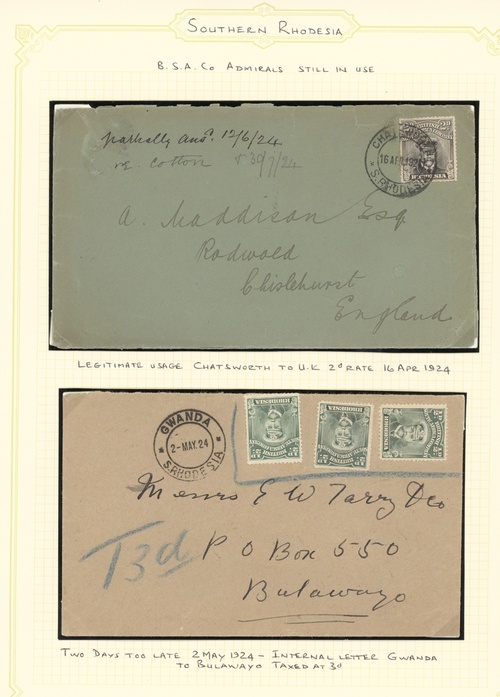 SOUTHERN RHODESIA
B.S.A. Co ADMIRALS STILL IN USE
partially ansd. 12/6/24
re cotton 30/7/24
CHATSWORTH
16 APR 1924
S. RHODESIA
2d
RHODESIA
A. Maddison Esq
Rodwold
Chislehurst
England
LEGITIMATE USAGE CHATSWORTH TO U.K 2d RATE 16 APR 1924
GWANDA
2-MAY.24
S. RHODESIA
RHODESIA
BRITISH SOUTH AFRICA COMPANY
½d ½d
RHODESIA
BRITISH SOUTH AFRICA COMPANY
½d ½d
Messrs E W Tarry & Co
T3d
P O Box 550
Bulawayo
TWO DAYS TOO LATE 2 MAY 1924 - INTERNAL LETTER GWANDA
TO BULAWAYO TAXED AT 3d